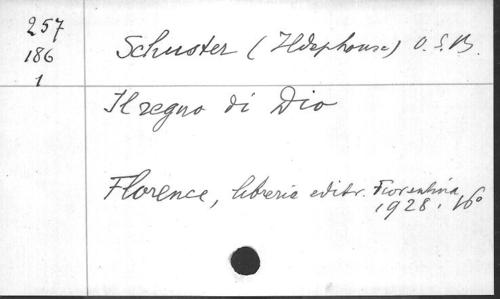 257
186
1
Schuster (Ildephonse) O.S.B.
Il regno di Dio
Florence, libreria editr. Fiorentina
1928. 16º